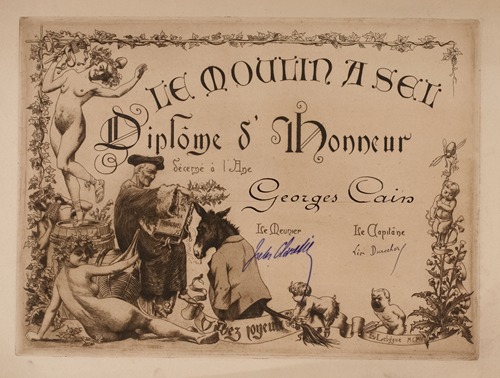 LE MOULIN A SEL
Diplôme d'Honneur
décerné à l'Ane
Georges Cain
Le Meunier
Le Capitaine
Léon Durocher
chez joyeux